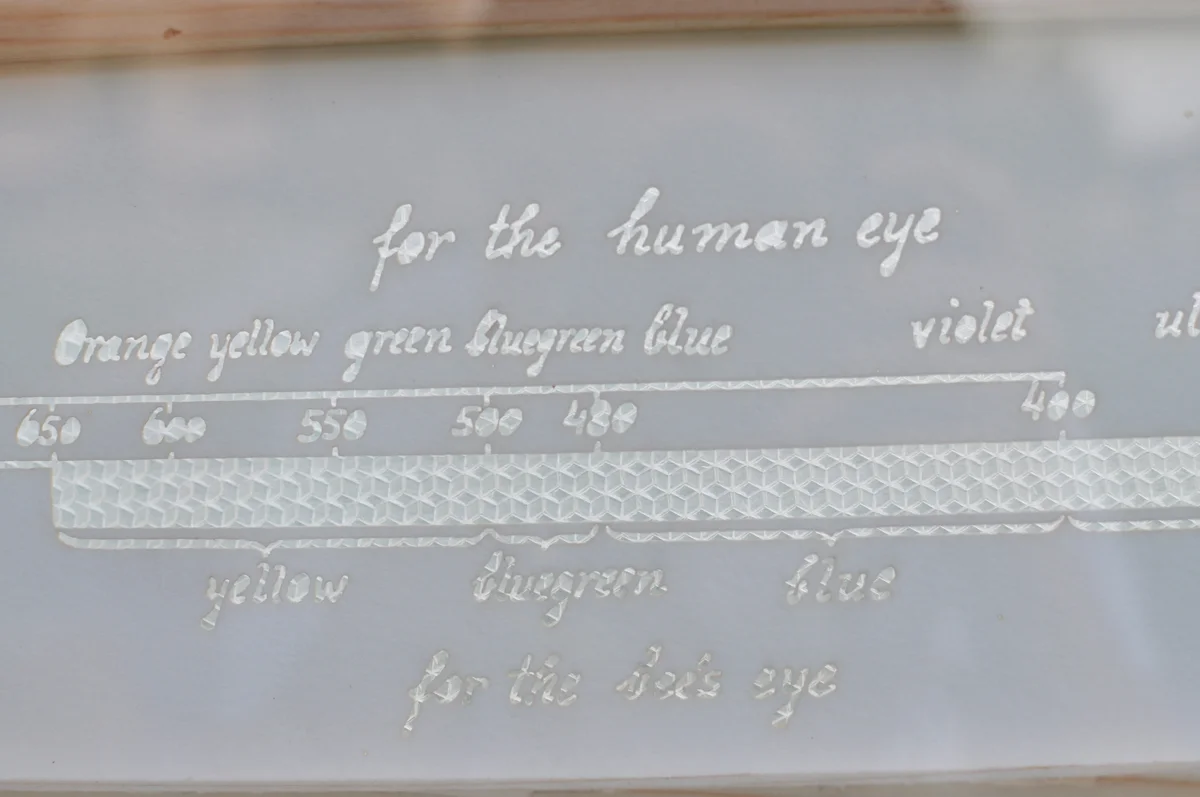 for the human eye
Orange yellow green bluegreen blue violet ul
650 600 550 500 480 400
yellow bluegreen blue
for the bee's eye